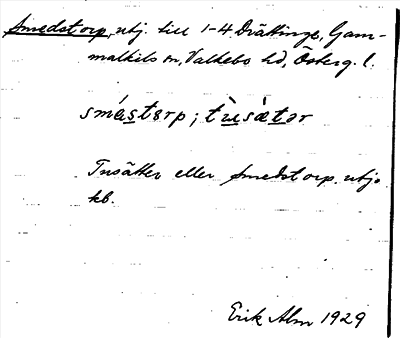 Smedstorp, utj. till 1-4 Drättinge, Gam-
malkils sn, Valkebo hd, Österg. l.
smástɘrp; tùsæ̀tər
Tusätter eller Smedstorp. utjo
kb.
Erik Alm 1929